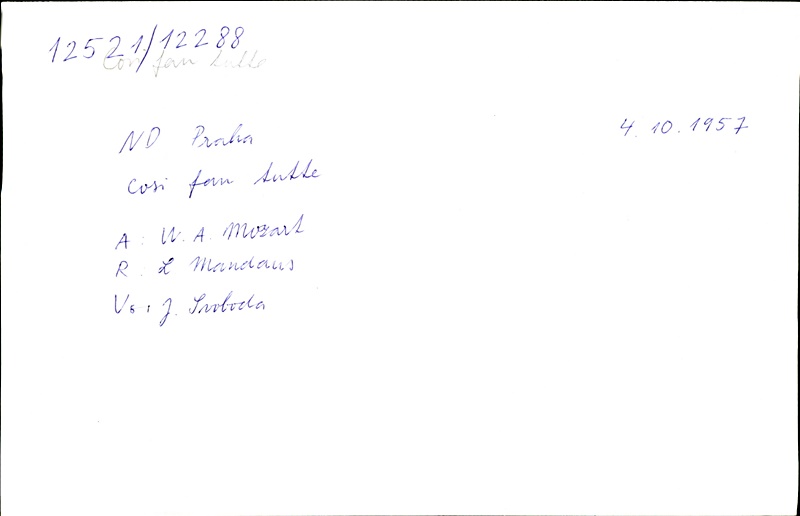 12521/12288
Cosi fan tutte
4. 10. 1957
ND Praha
Cosi fan tutte
A: W. A. Mozart
R: L Mandaus
Vs: J. Svoboda